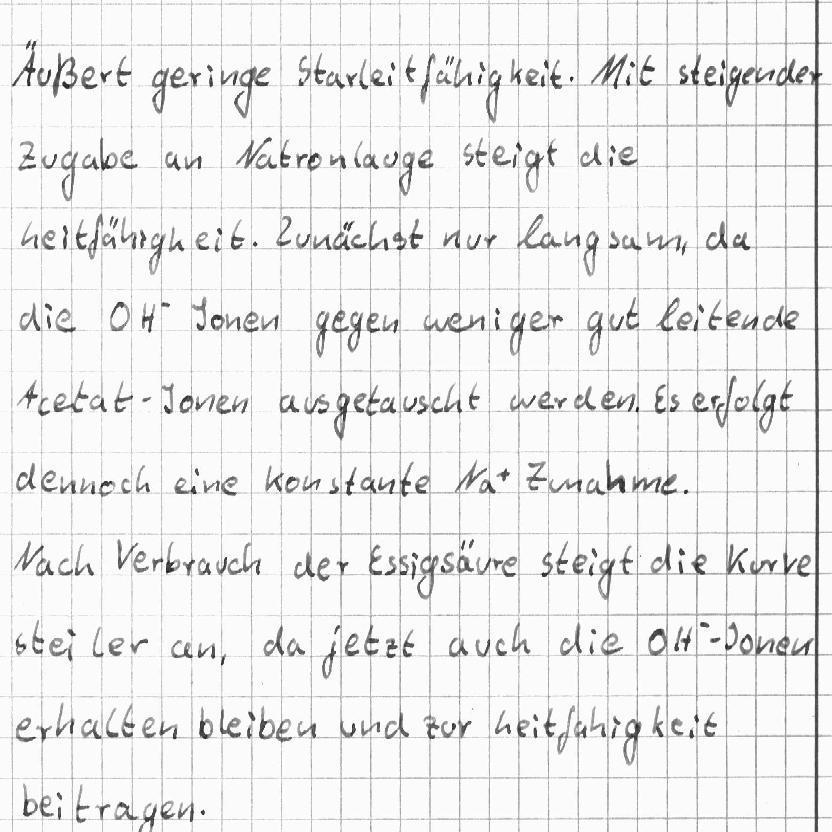 Äußert geringe Starleitfähigkeit. Mit steigender
Zugabe an Natronlauge steigt die
Leitfähigkeit. Zunächst nur langsam, da
die OH⁻ Ionen gegen weniger gut leitende
Acetat-Ionen ausgetauscht werden. Es erfolgt
dennoch eine konstante Na⁺ Zunahme.
Nach Verbrauch der Essigsäure steigt die Kurve
steiler an, da jetzt auch die OH⁻-Ionen
erhalten bleiben und zur Leitfahigkeit
beitragen.